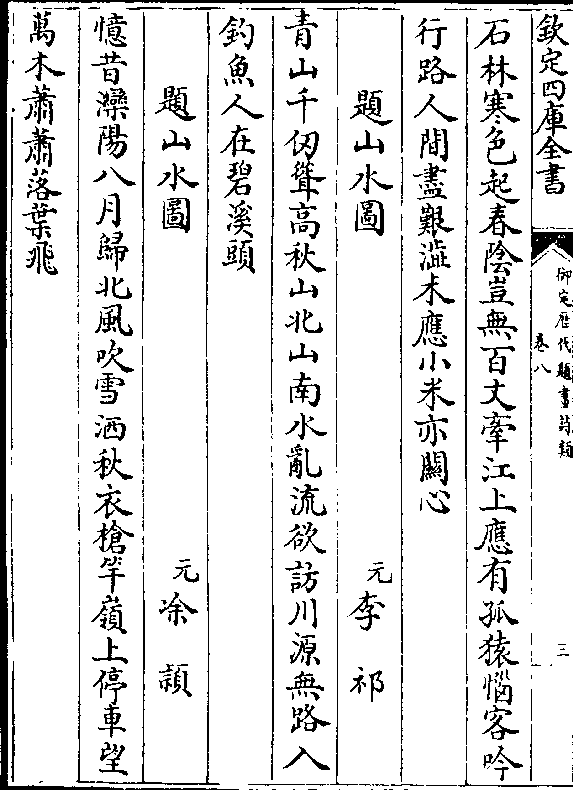 欽定四庫全書
御定歴代題畫詩類
卷八
三
石林寒色起春陰豈無百丈牽江上應有孤猿惱客吟
行路人間盡艱澁未應小米亦關心
題山水圖
元李祁
青山千仞聳高秋山北山南水亂流欲訪川源無路入
釣魚人在碧溪頭
題山水圖
元凃頴
憶昔灤陽八月歸北風吹雪洒秋衣槍竿嶺上停車望
萬木蕭蕭落葉飛